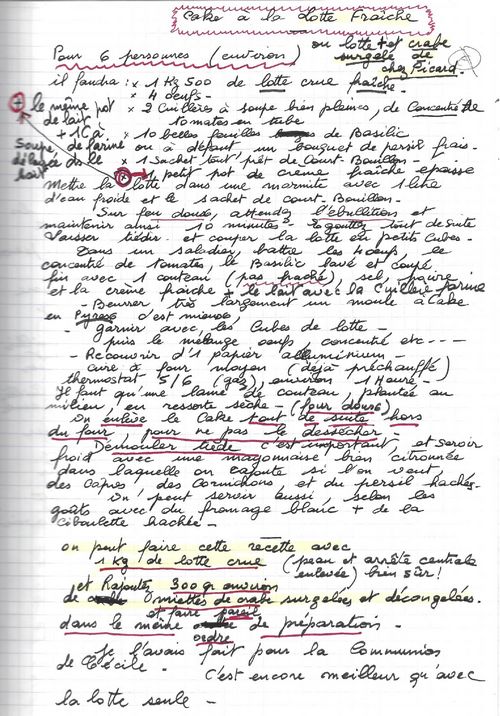 Cake à la Lotte Fraîche
ou lotte + et crabe
Pour 6 personnes (environ) surgelé de
chez Picard.
il faudra : x 1 Kg 500 de lotte crue fraîche.
x 4 oeufs.
+ le même pot x 2 Cuillères à soupe bien pleines, de Concentré de
de lait tomates en tube
+ 1 C à x 10 belles feuilles de Basilic
Soupe de farine ou à défaut un bouquet de persil frais.
délayée ds le x 1 Sachet tout prêt de Court-Bouillon.
lait x 1 petit pot de crème fraîche épaisse
Mettre la lotte dans une marmite avec 1 litre
d'eau froide et le sachet de court-Bouillon.
Sur feu doux, attendez l'ébullition et
maintenir ainsi 10 minutes - Egouttez tout de suite
Laisser tiédir. et couper la lotte en petits Cubes.
Dans un saladier, battre les 4 oeufs, le
concentré de tomates, le Basilic lavé et coupé
fin avec 1 couteau (pas haché), sel, poivre
et la crème fraîche + le lait avec la Cuillère farine
- Beurrer très largement un moule à Cake
en Pyrex c'est mieux,
- garnir avec, les Cubes de lotte -
puis le mélange oeufs, concentré etc ---
- Recouvrir d'1 papier alluminium -
cuire à four moyen (déjà préchauffé)
thermostat 5/6 (gaz), environ 1 Heure -
Il faut qu'une lame de couteau, plantée au
milieu, en ressorte sèche - (four doux)
On enlève le Cake tout de suite hors
du four, pour ne pas le dessécher -
Démouler tiède c'est important, et servir
froid avec une mayonnaise bien citronnée
dans laquelle on rajoute si l'on veut,
des Câpres, des Cornichons, et du persil hachés.
On peut servir aussi, selon les
goûts avec du fromage blanc + de la
ciboulette hachée -
on peut faire cette recette avec
1 Kg de lotte crue (peau et arrête centrale
enlevée) bien sûr!
et Rajoutez 300 gr environ
de miettes de crabe surgelées et décongelées.
et faire pareil
dans le même de préparation.
ordre
Je l'avais fait pour la Communion
de Cécile. C'est encore meilleur qu'avec
la lotte seule -